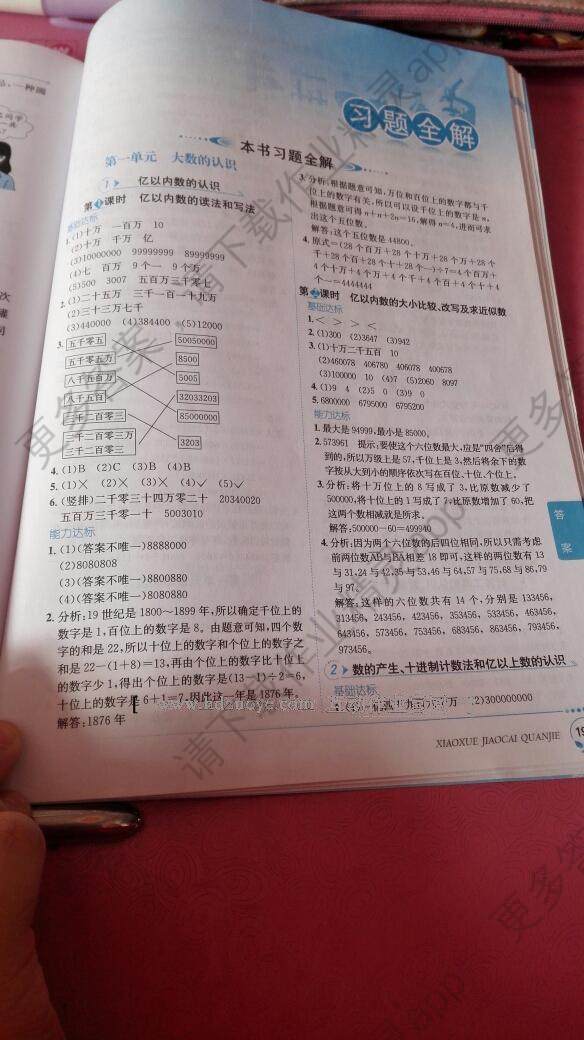 习题全解
本书习题全解
第一单元 大数的认识
1 亿以内数的认识
第1课时 亿以内数的读法和写法
基础达标
1.(1)十万 一百万 10
(2)十万 千万 亿
(3)10000000 99999999 89999999
(4)七 百万 9个一 9个万
(5)500 3007 五百万三千零七
2.(1)二十五万 三千一百一十九万
(2)三十三万七千
(3)440000 (4)384400 (5)12000
3.
五千零五 50050000
五千零五万 8500
八千五百万 5005
八千五百 32033203
三千二百零三 85000000
三千二百零三万
三千二百零三 3203
4.(1)B (2)C (3)B (4)B
5.(1)× (2)× (3)× (4)✓ (5)✓
6.(竖排)二千零三十四万零二十 20340020
五百万三千零一十 5003010
能力达标
1.(1)(答案不唯一)8888000
(2)8080808
(3)(答案不唯一)8800880
(4)(答案不唯一)8080880
2.分析:19世纪是1800~1899年,所以确定千位上的
数字是1,百位上的数字是8。由题意可知,四个数
字的和是22,所以十位上的数字和个位上的数字之
和是22-(1+8)=13,再由个位上的数字比十位上
的数字少1,得出个位上的数字是(13-1)÷2=6,
十位上的数字是6+1=7,因此这一年是1876年。
解答:1876年
3.分析:根据题意可知,万位和百位上的数字都与千
位上的数字有关,所以可以设千位上的数字是n,
根据题意可得n+n+2n=16,解得n=4,进而可求
出这个五位数。
解答:这个五位数是44800。
4.原式=(28个百万+28个十万+28个万+28个
千+28个百+28个十+28个一)÷7=4个百万+
4个十万+4个万+4个千+4个百+4个十+4
个一=4444444
第2课时 亿以内数的大小比较、改写及求近似数
基础达标
1.< > > <
2.(1)300 (2)3647 (3)942
3.(1)十万二千五百 10
(2)460078 406780 406078 400678
(3)100000 10 (4)7 (5)2060 8097
4.(1)9 4 (2)5 0 (3)9 0
5.6800000 6795000 6795200
能力达标
1.最大是94999,最小是85000。
2.573961 提示:要使这个六位数最大,应是“四舍”后得
到的,所以万级上是57,千位上是3,然后将余下的数
字按从大到小的顺序依次写在百位、十位、个位上。
3.分析:将十万位上的8写成了3,比原数减少了
500000,将十位上的1写成了7,比原数增加了60,把
这两个数相减就是所求。
解答:500000-60=499940
4.分析:因为两个六位数的后四位相同,所以只需考虑
前两位数AB与BA相差18即可,这样的两位数有13
与31,24与42,35与53,46与64,57与75,68与86,79
与97。
解答:这样的六位数共有14个,分别是133456,
313456,243456,423456,353456,533456,463456,
643456,573456,753456,683456,863456,793456,
973456。
2 数的产生、十进制计数法和亿以上数的认识
基础达标
(2)300000000
XIAOXUE JIAOCAI QUANJIE
答
案
请下载作业精灵app
更多答案